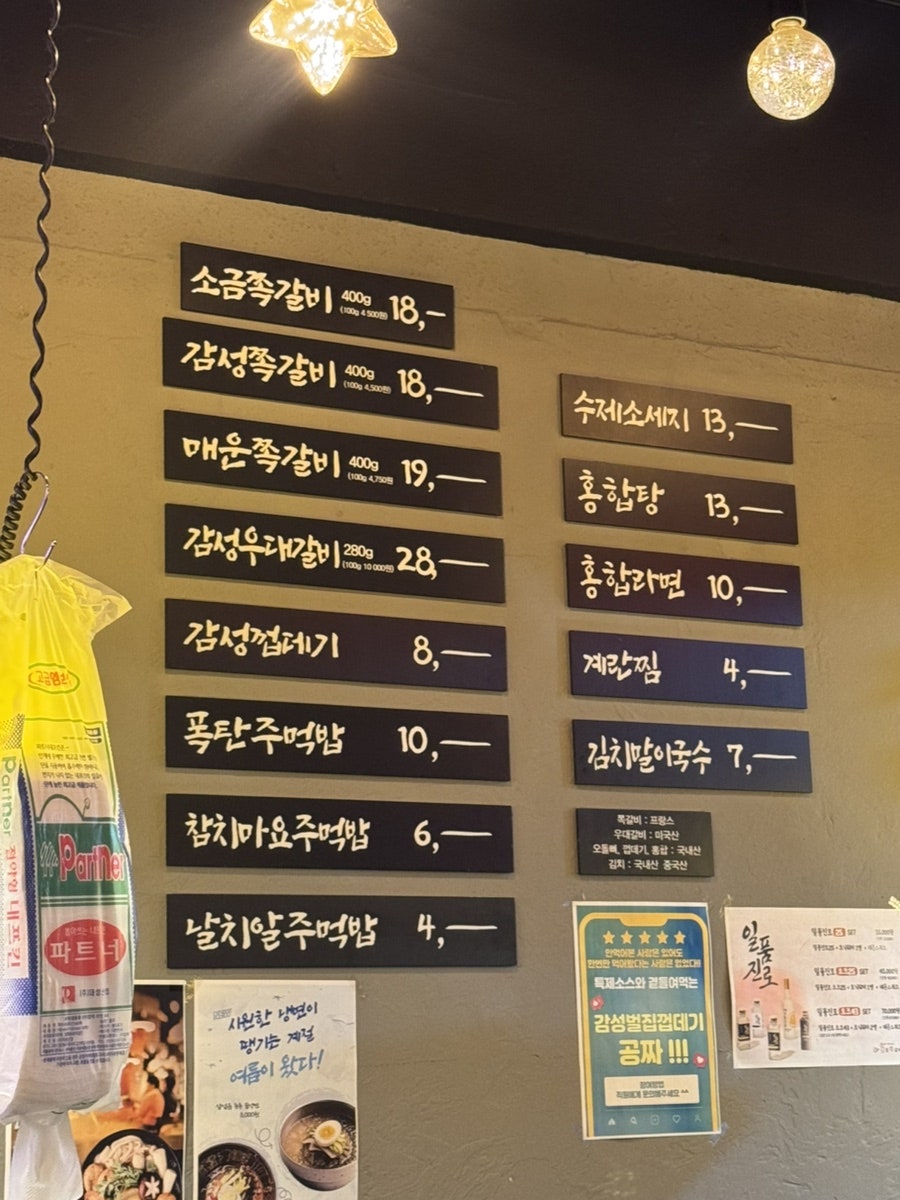 소금쪽갈비 400g (100g 4,500원) 18,-
감성쪽갈비 400g (100g 4,500원) 18,-
매운쪽갈비 400g (100g 4,750원 19,-
감성우대갈비 280g (100g 10 000원) 28,-
감성껍데기 8,-
폭탄주먹밥 10,-
참치마요주먹밥 6,-
날치알주먹밥 4,-
수제소세지 13,-
홍합탕 13,-
홍합라면 10,-
계란찜 4,-
김치말이국수 7,-
쪽갈비 : 프랑스
우대갈비 : 미국산
오돌뼈, 껍데기, 홍합 : 국내산
김치 : 국내산 중국산
안먹어본 사람은 있어도
한번만 먹어봤다는 사람은 없었다!!
특제소스와 곁들여먹는
감성벌집껍데기
공짜 !!!
참여방법
직원에게 문의해주세요 ^^
일품
진로
일품진로 25 SET
시원한 냉면이
땡기는 계절
여름이 왔다!
Partner
파트너
Partner